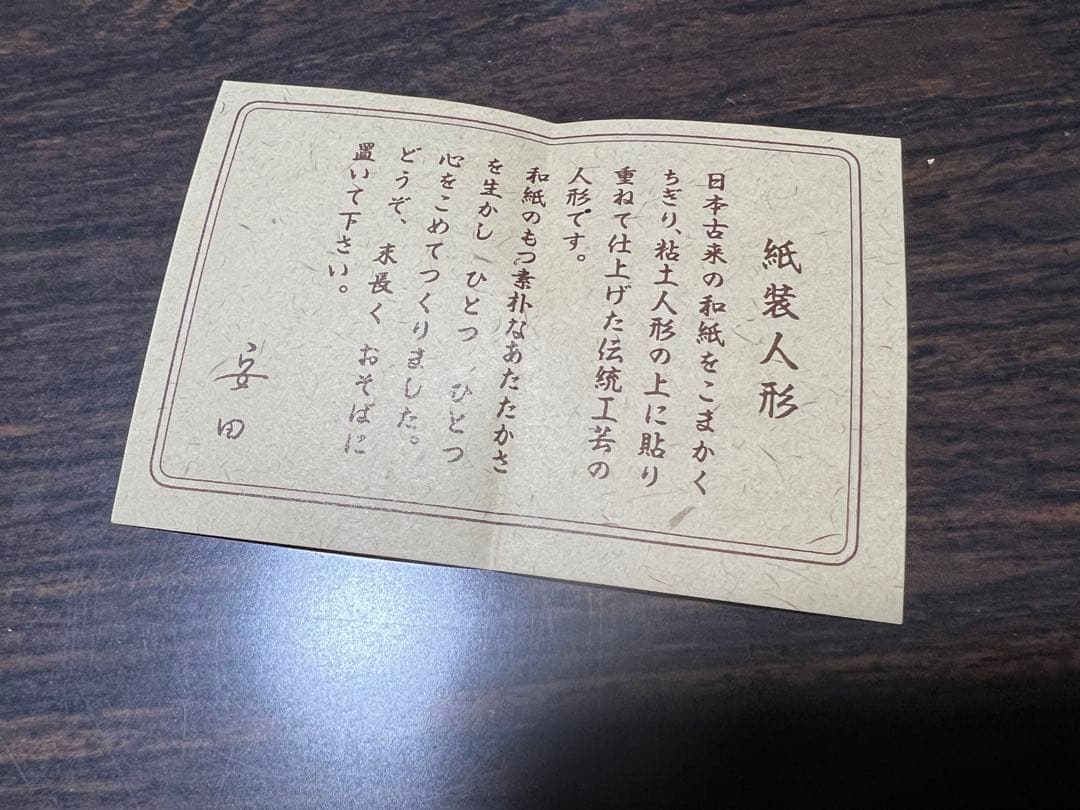 紙装人形
日本古来の和紙をこまかく
ちぎり、粘土人形の上に貼り
重ねて仕上げた伝統工芸の
人形です。
和紙のもつ素朴なあたたかさ
を生かし ひとつ、ひとつ
心をこめてつくりました。
どうぞ、末長く おそばに
置いて下さい。
安田